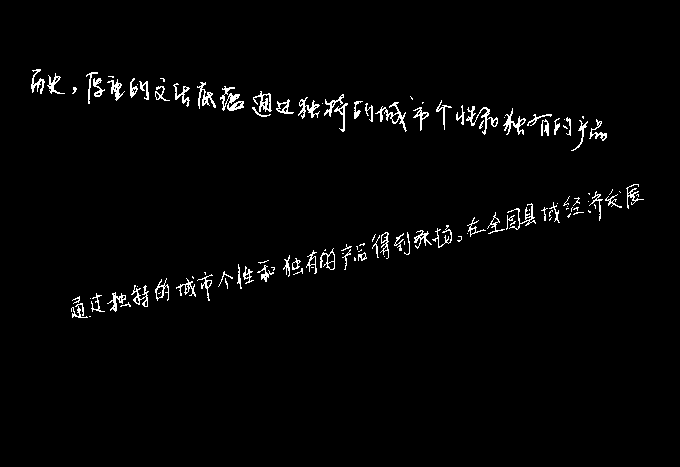 历史,厚重的文化底蕴通过独特的城市个性和独有的产品
通过独特的城市个性和独有的产品得到张扬。在全国县域经济发展